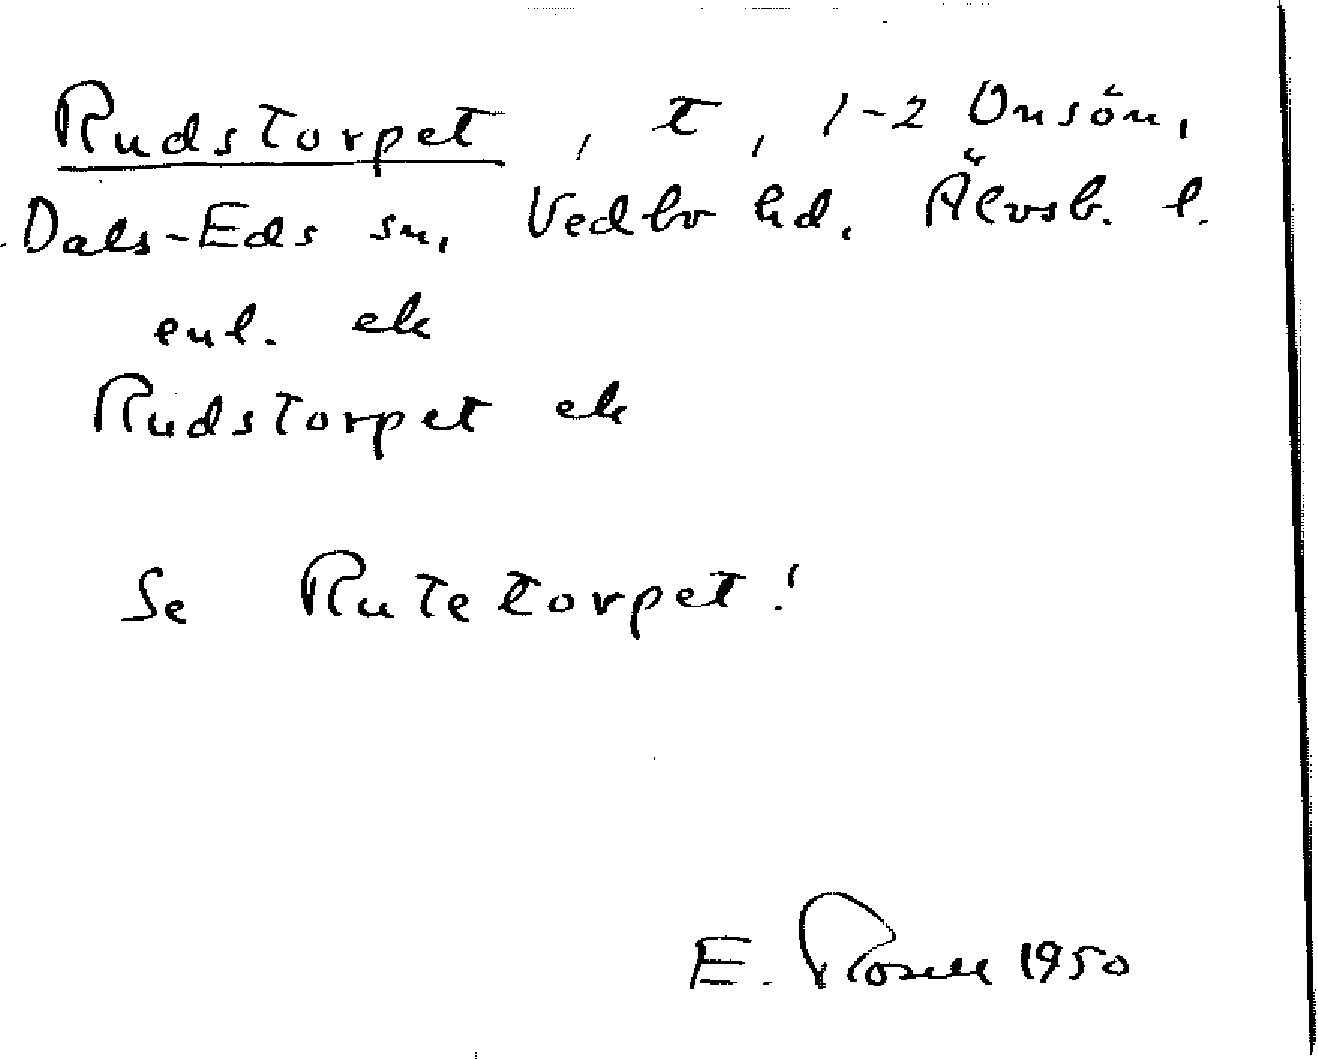 Rudstorpet, t, 1-2 Onsön,
Dals-Eds sn, Vedbo hd. Älvsb. l.
enl. ek
Rudstorpet ek
Se Rutetorpet!
E. Rosell 1950